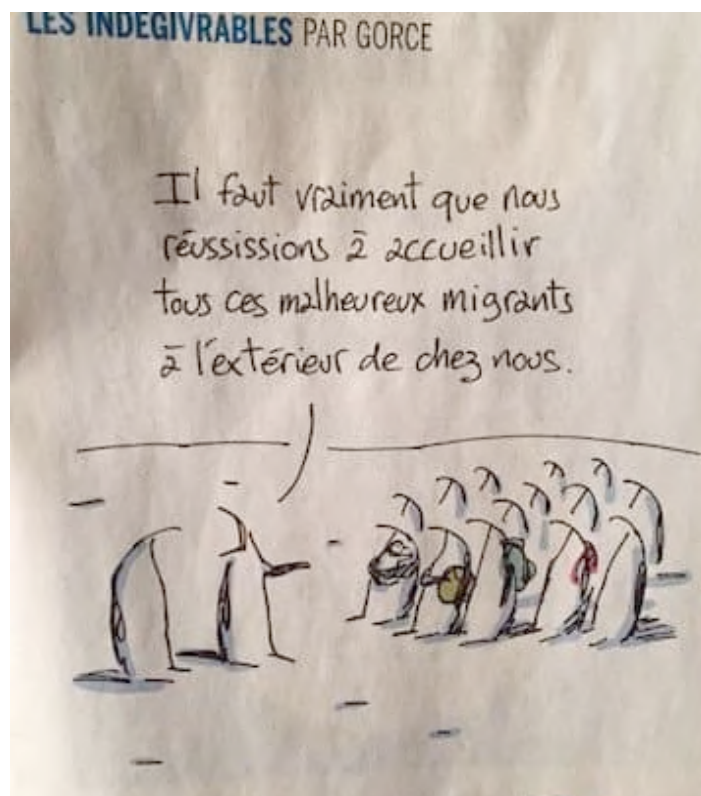 LES INDÉGIVRABLES PAR GORCE
Il faut vraiment que nous
réussissions à accueillir
tous ces malheureux migrants
à l'extérieur de chez nous.